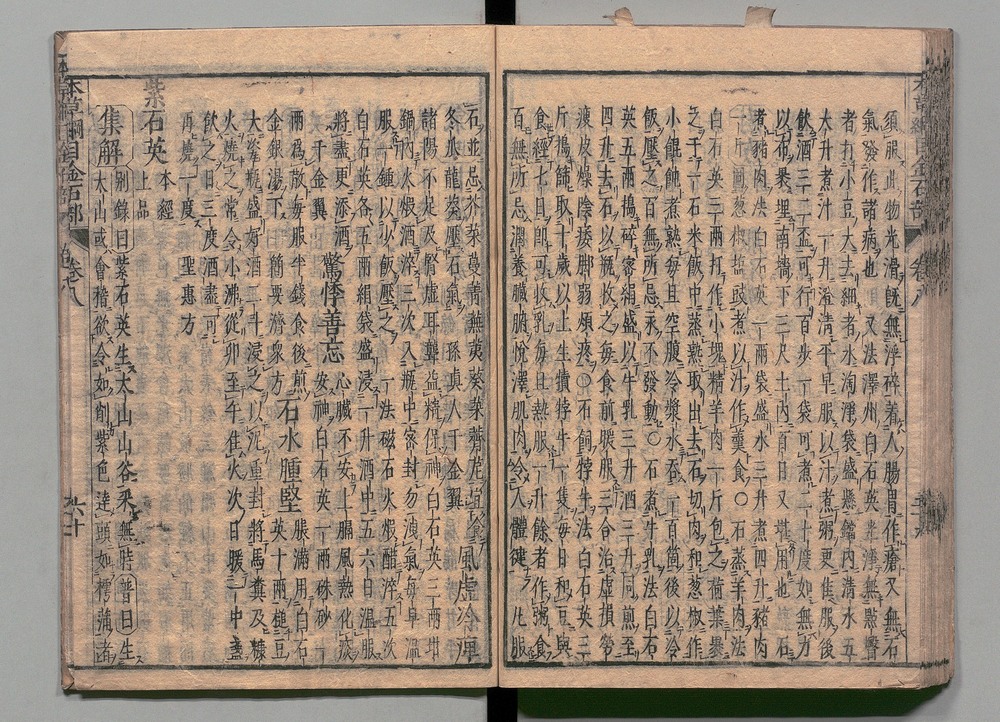 須服此物光滑既無浮碎着人腸胃作瘡又無石
氣發作諸病也 又法澤州白石英光淨無點瞖
者打小豆大去細者水淘淨袋盛懸鐺內清水五
大升煮汁一升澄清平早服以汁煮粥更佳服後
飲酒二三盃可行百步一袋可煮二十度如無力
以布裹埋南墻下三尺土內百日又堪用也 石
煮豬肉法白石英一兩袋盛水三升煮四升豬肉
一斤同葱椒鹽豉煮以汁作羹食〇石蒸羊肉法
白石英三兩打作小塊精羊肉一斤包之荷葉裹
之于一石米飯中蒸熟取出去石切肉和葱椒作
小餛飩煮熟每旦空腹冷漿水吞一百箇後以冷
飯壓之百無所忌永不發動〇石煮牛乳法白石
英五兩搗碎密絹盛以牛乳三升酒三升同煎至
四升去石以瓶收之每食前暖服三合治虛損勞
瘦皮燥陰痿脚弱煩疼〇石飼牸牛法白石英三
斤搗篩取十歲以上生犢牸牛一隻每日和豆與
食經七日即可收乳每旦熱服一升餘者作粥食
百無所忌潤養臟腑悅澤肌肉令人體健 凡服
石並忌芥菜蔓菁蕪荑葵菜薺苨宜食
冬瓜龍葵壓石氣 孫真人千金翼 風虛冷痺
諸陽不足及腎虛耳聾益精保神白石英三兩坩
鍋內火煆酒淬三次入瓶中密封勿洩氣每早溫
服一鍾以少飯壓之 一法磁石火煆醋淬五次
白石英各五兩絹袋盛浸一升酒中五六日溫服
將盡更添酒 千金翼 驚悸善忘 心臟不安上膈風熱化痰
安神白石英一兩硃砂一
兩爲散每服半錢食後煎
金銀湯下 簡要濟衆方 石水腫堅 脹滿用白石
英十兩槌豆
大瓷瓶盛好酒二斗浸之以泥重封將馬糞及糠
火燒之常令小沸從卯至午住火次日暖一中盞
飲之日三度酒盡可
再燒一度 聖惠方
紫石英 本經
上品
集解 別錄曰紫石英生太山山谷采無時普曰生
太山或會稽欲令如削紫色達頭如樗蒲者
本草綱目金石部 卷八 六十